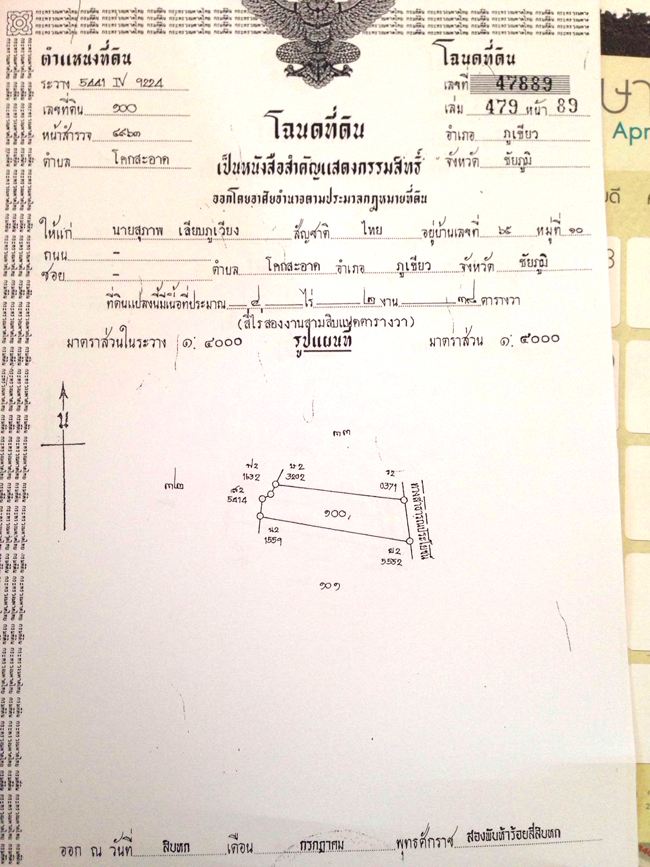 ตำแหน่งที่ดิน
ระวาง 5441 IV 9224
เลขที่ดิน ๑๐๐
หน้าสำรวจ ๔๙๖๓
ตำบล โคกสะอาด
โฉนดที่ดิน
เลขที่ 47889
เล่ม 479 หน้า 89
อำเภอ ภูเขียว
จังหวัด ชัยภูมิ
โฉนดที่ดิน
เป็นหนังสือสำคัญแสดงกรรมสิทธิ์
ออกโดยอาศัยอำนาจตามประมวลกฎหมายที่ดิน
ให้แก่ นายสุภาพ เลียบภูเวียง สัญชาติ ไทย อยู่บ้านเลขที่ ๖๕ หมู่ที่ ๑๐
ถนน -
ซอย - ตำบล โคกสะอาด อำเภอ ภูเขียว จังหวัด ชัยภูมิ
ที่ดินแปลงนี้มีเนื้อที่ประมาณ ๔ ไร่ ๒ งาน ๓๘ ตารางวา
(สี่ไร่สองงานสามสิบแปดตารางวา)
มาตราส่วนในระวาง ๑: ๔๐๐๐ รูปแผนที่ มาตราส่วน ๑: ๔๐๐๐
น
๓๓
๓๒
1632
ษ2
3202
0371
ส2
5414
๑๐๐
ทางสาธารณประโยชน์
น2
1559
5552
๑๐๑
ออก ณ วันที่ สิบหก เดือน กรกฎาคม พุทธศักราช สองพันห้าร้อยสี่สิบหก
Apr